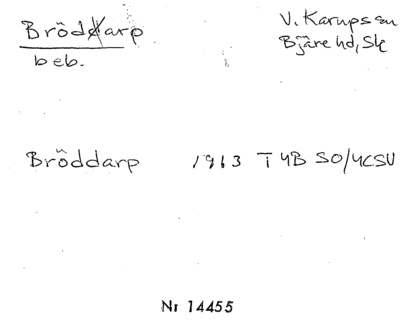 Bröddarp
V. Karups sn
beb.
Bjäre hd, Sk
Bröddarp 1913 T4B SO/4CSV
Nr 14455